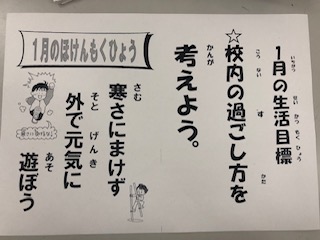 1月の生活目標
☆校内の過ごし方を
考えよう。
1月のほけんもくひょう
寒さにまけず
外で元気に
遊ぼう